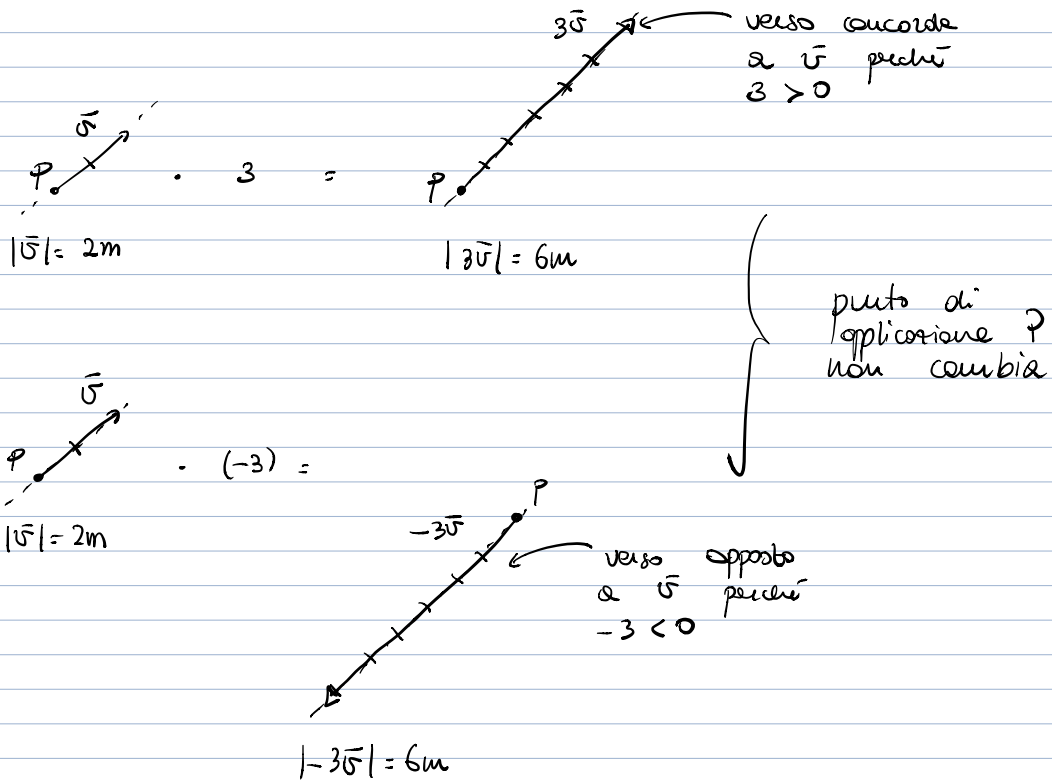 3v̄
verso concorde
a v̄ perché
3 > 0
v̄
P
· 3 =
P
|v̄| = 2m
|3v̄| = 6m
punto di
applicazione P
non cambia
v̄
P
· (-3) =
|v̄| = 2m
P
-3v̄
verso opposto
a v̄ perché
-3 < 0
|-3v̄| = 6m